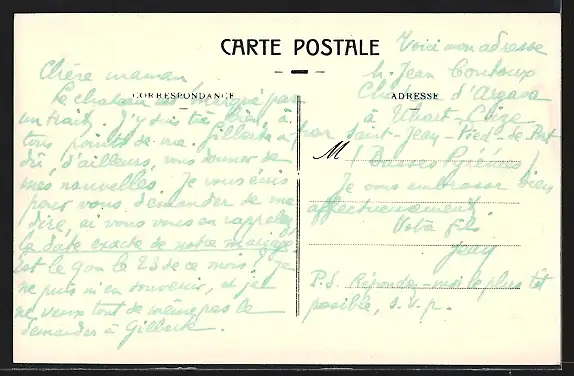 CARTE POSTALE
CORRESPONDANCE
ADRESSE
M
Chère maman
Le chateau est marqué par
un trait. J'y suis très bien, à
tous points de vue. Gilberte a
dû, d'ailleurs, vous donner de
mes nouvelles. Je vous écris
pour vous demander de me
dire, si vous vous en rappelez,
la date exacte de notre mariage
Est ce que le 23 de ce mois? Je
ne puis m'en souvenir, et je
ne veux tout de même pas le
demander à Gilberte.
Voici mon adresse
M. Jean
Château d'
à Uhart-Cize
par Saint-Jean-Pied-de-Port
(Basses Pyrénées)
Je vous embrasse bien
affectueusement.
Votre fils
P.S. Répondez-moi le plus tôt
possible, s.v.p.